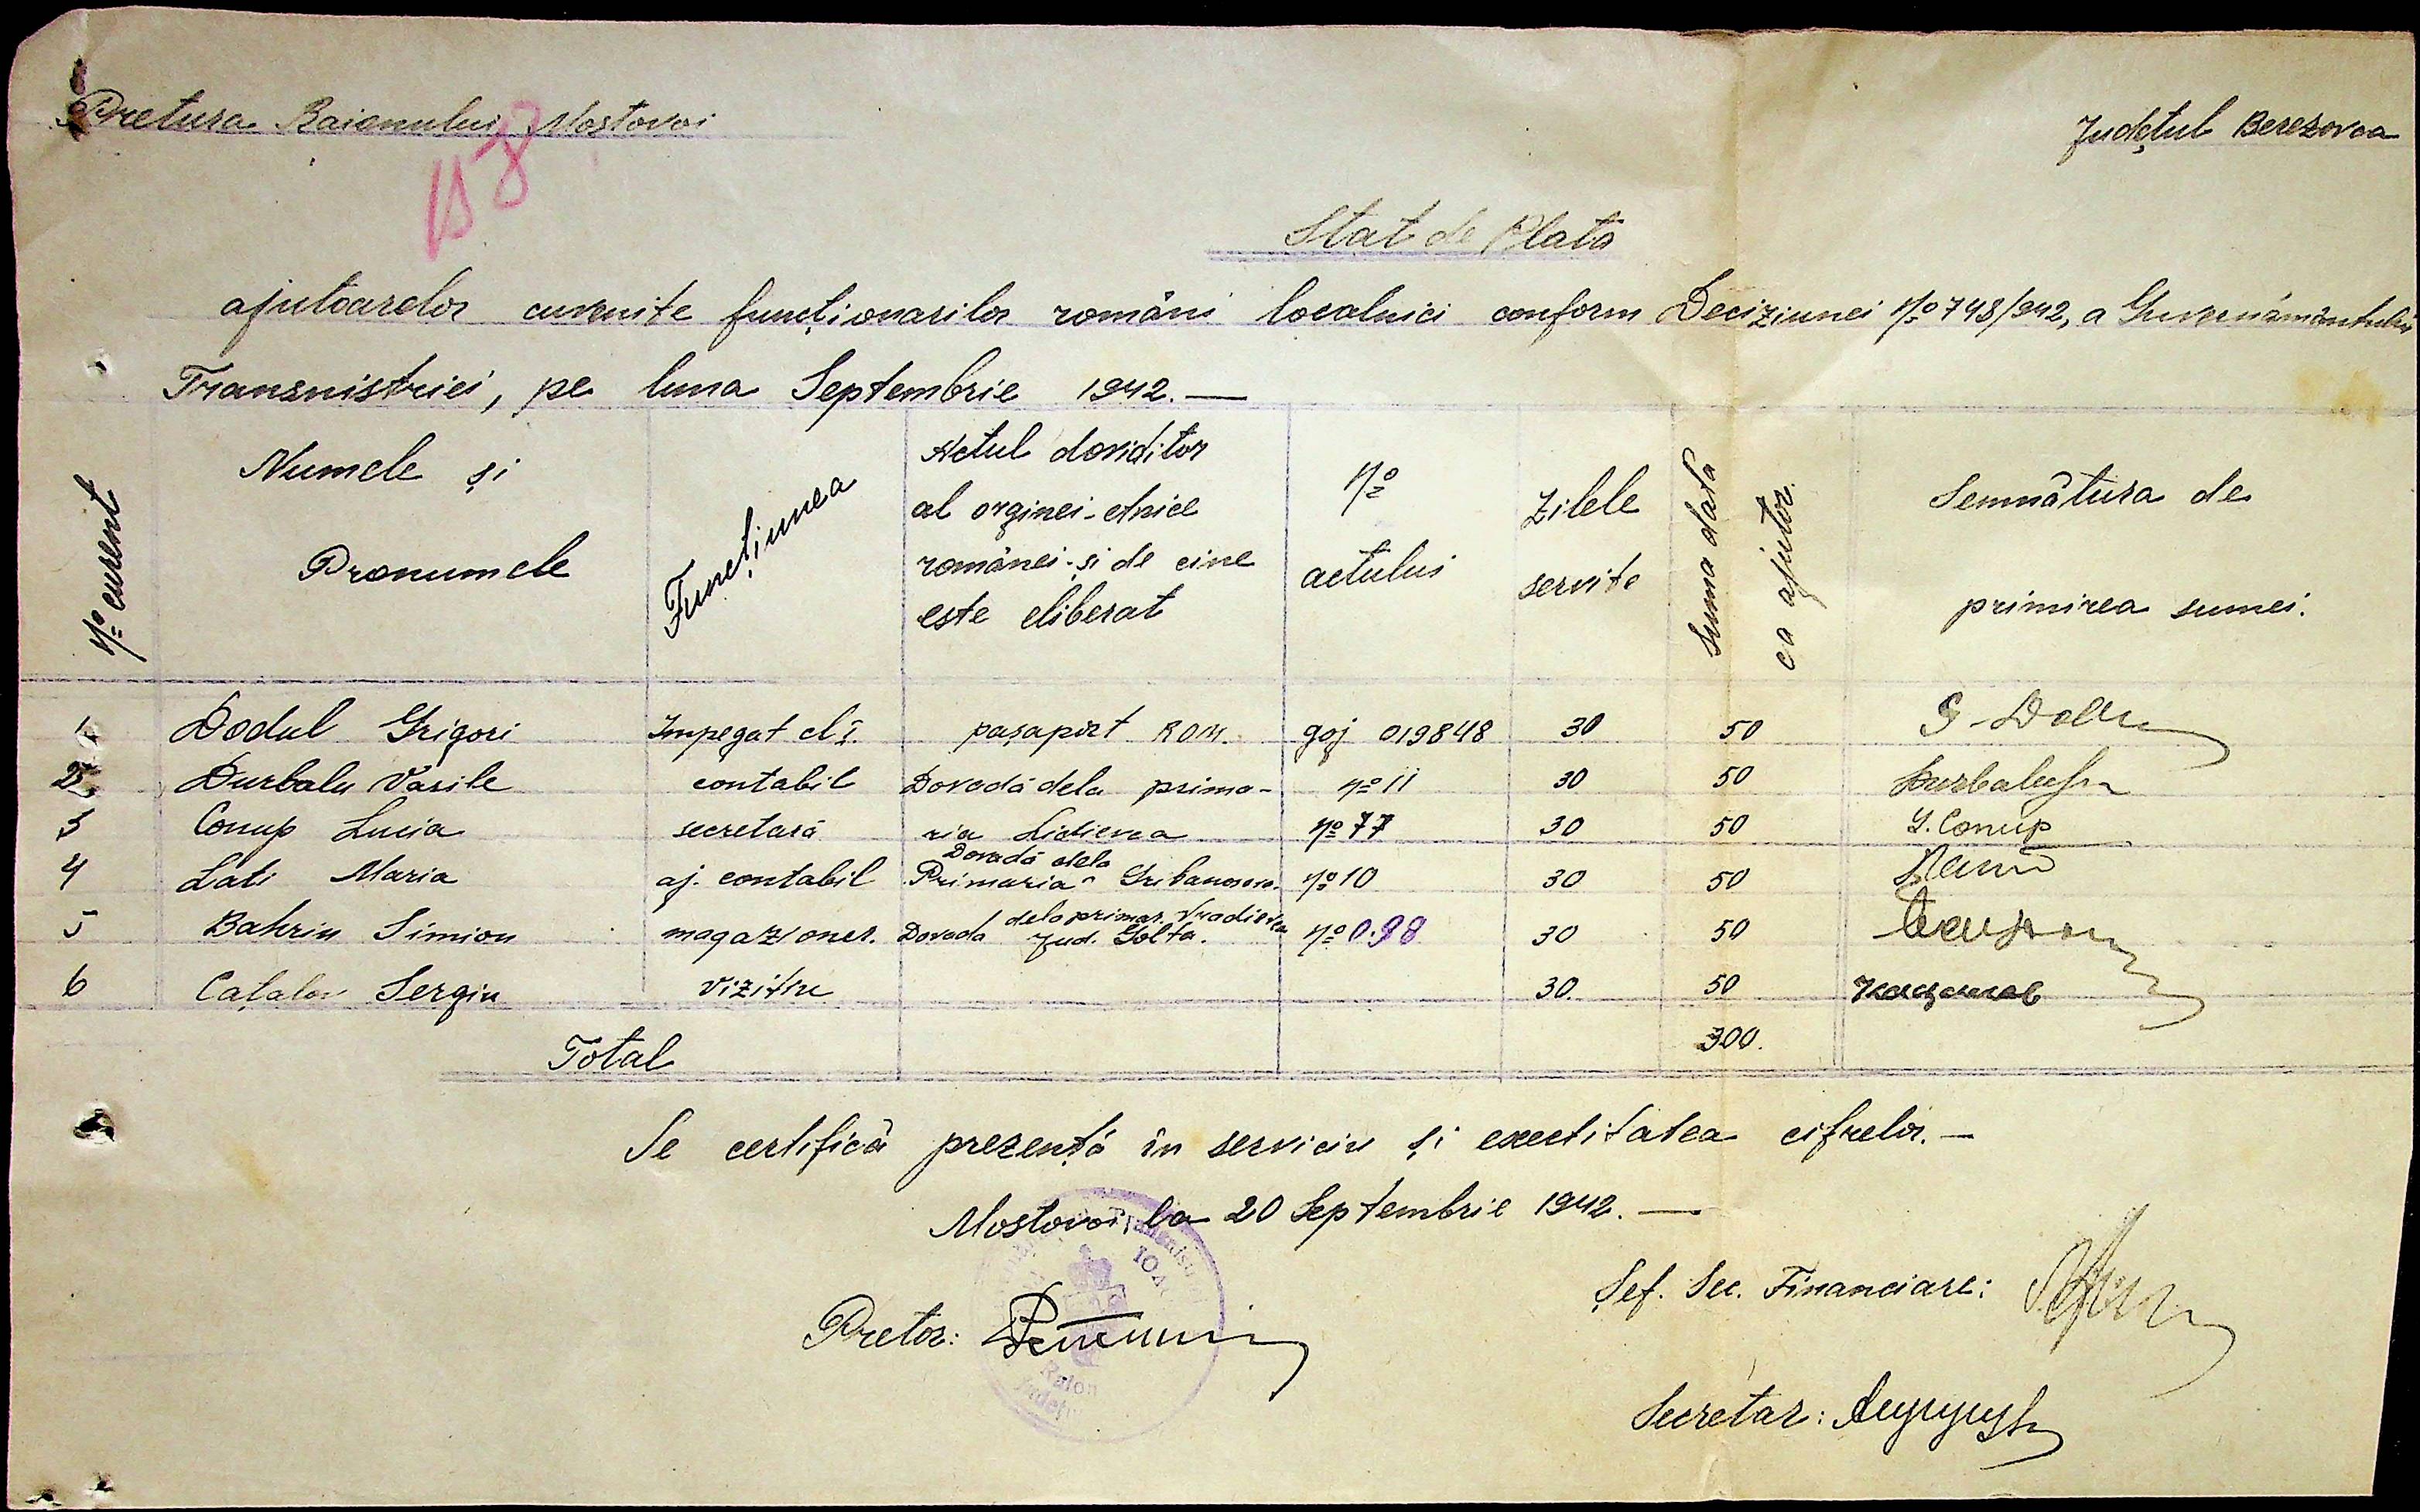 Pretura Raionului Mostovoi
Județul Berezovca
158
Stat de Plata
ajutoarelor cuvenite funcționarilor români localnici conform Deciziunei No 748/942, a Guvernământului
Transnistriei, pe luna Septembrie 1942.—
No curent | Numele și Pronumele | Funcțiunea | Actul doviditor al orginei-etnice românei-și de cine este eliberat | No actului | Zilele servite | Suma data ca ajutor. | Semnătura de primirea sumei.
1 Dodul Grigori Impegat cl I. pașaport ROM. goj 019848 30 50 G. Dodu
2 Durbalu Vasile contabil Dovadă dela prima- No 11 30 50
3 Conup Lucia secretară ria Lidievca No 77 30 50 L. Conup
4 Lati Maria aj. contabil Dovadă dela Primaria Gribanosova No 10 30 50
5 Bahrin Simion magazioner. Dovada dela primar. Vradievca Jud. Golta. No 0.98 30 50
6 Cațalov Sergiu vizitiu 30. 50 Кацалов
Total 300.
Se certifică prezentă în serviciu și exectitatea cifrelor.—
Mostovoi la 20 Septembrie 1942.—
Pretor:
Șef. Sec. Financiare:
Secretar:
Raion
Județ